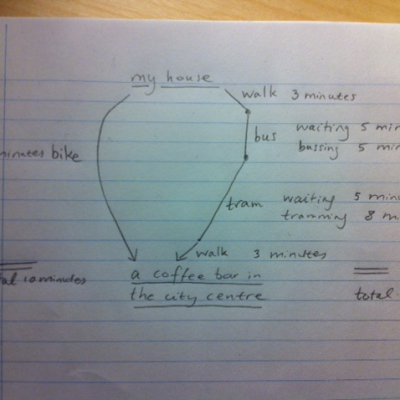 my house
walk 3 minutes
bus waiting 5 min
bussing 5 min
minutes bike
tram waiting 5 minu
tramming 8 m
walk 3 minutes
a coffee bar in
the city centre
al 10 minutes
total